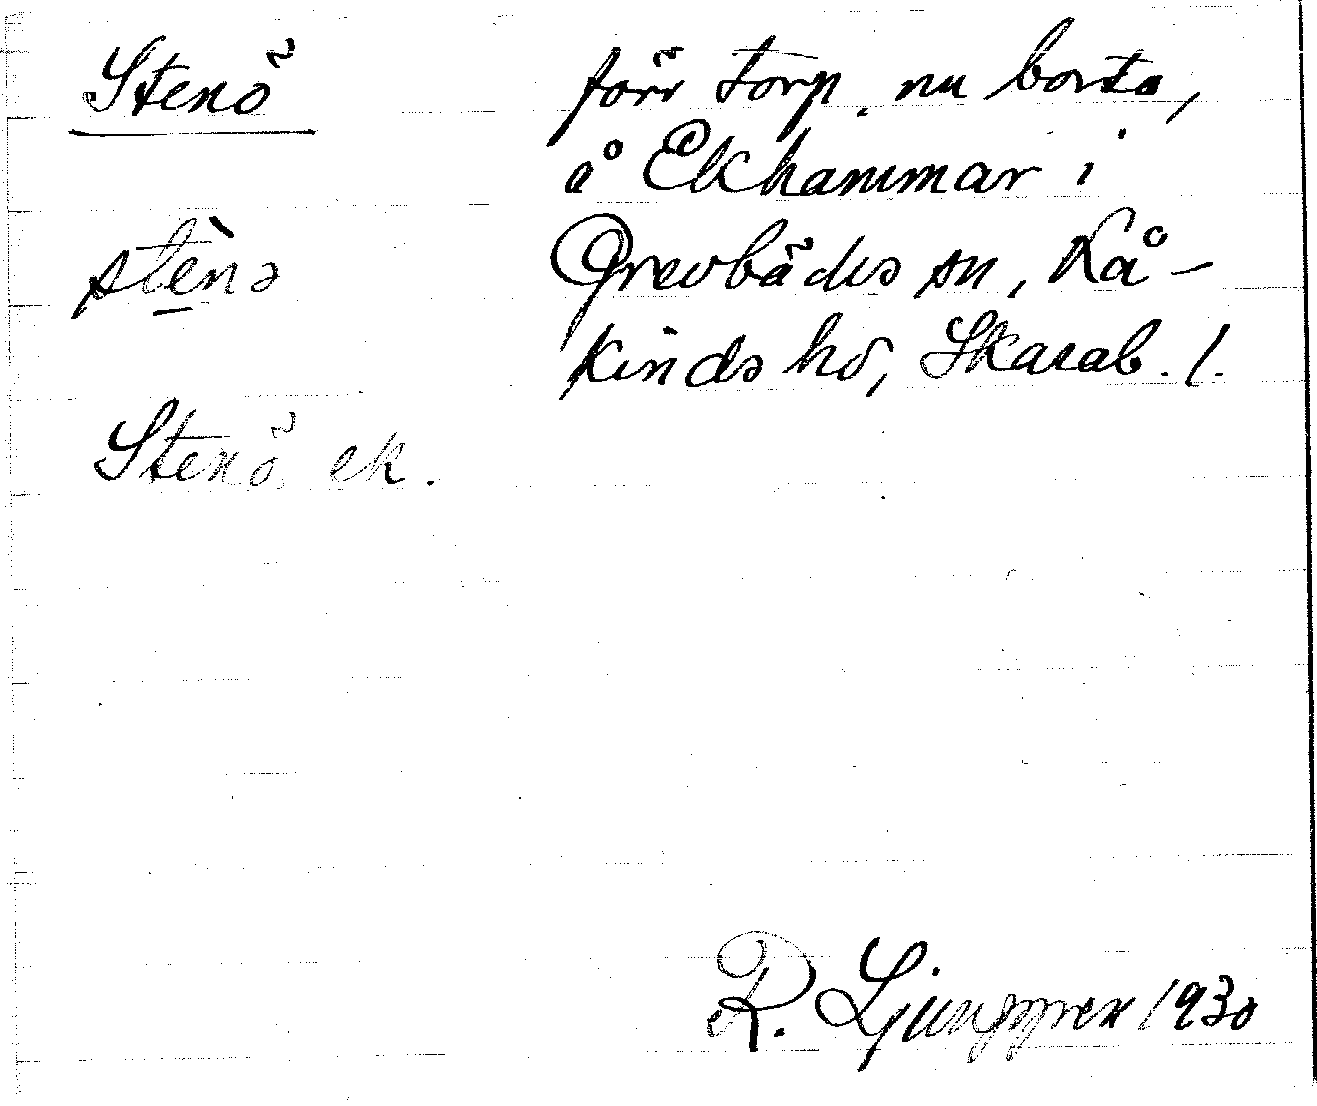 Stenö
förr torp, nu borta,
å Ekhammar i
Grevbäcks sn, Kå-
kinds hd, Skarab. l.
stènə
Stenö ek.
R. Ljunggren 1930